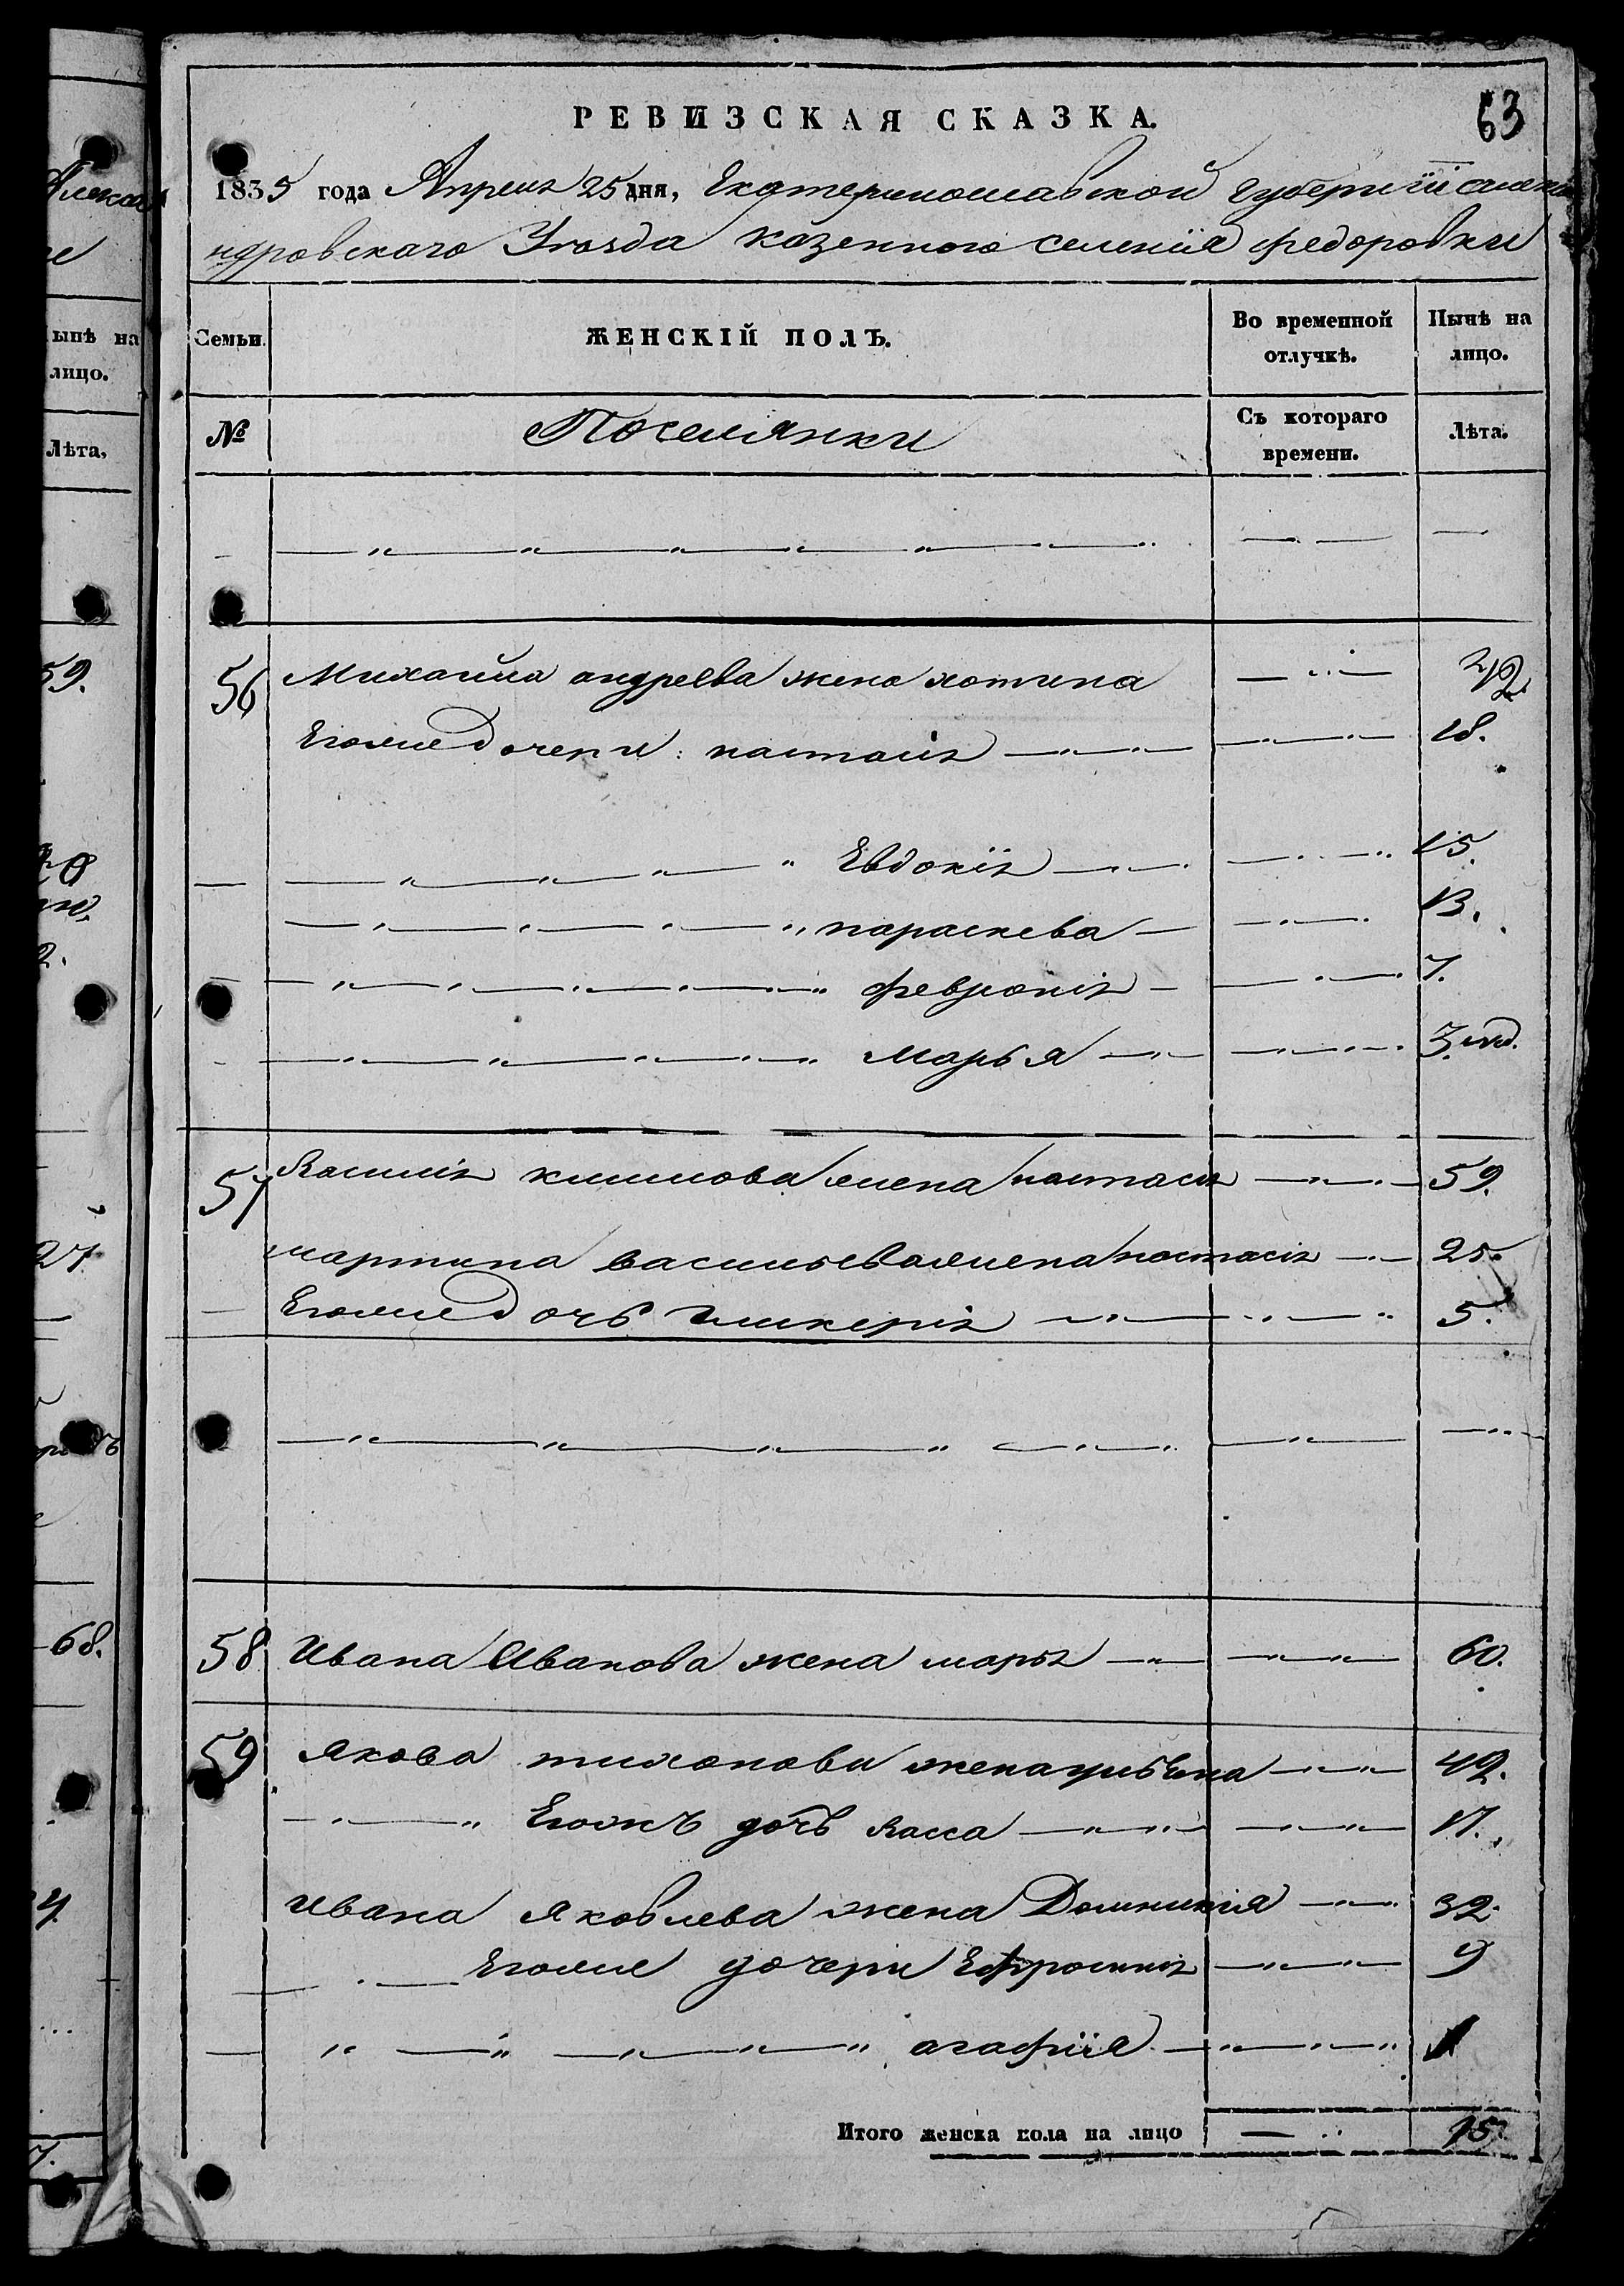 РЕВИЗСКАЯ СКАЗКА.
63
1835 года Апреля 25 дня, Екатеринославской губернiи алекса
ндровскаго Уезда казенного селенiя федоровки
Семьи.
ЖЕНСКІЙ ПОЛЪ.
Во временной отлучкѣ.
Нынѣ на лицо.
№
Поселянки
Съ котораго времени.
Лѣта.
56 Михайла андреева жена хотина
Егожже дочери: настасiя 18.
Евдокiя 15.
параскева 13.
феврония 7.
марья 3. нед.
57 Василiя климова жена настасiя 59.
мартина васильева жена настасiя 25.
Егоже дочь гликерiя 5.
58 Ивана Иванова жена марья 60.
59 Якова тихонова жена ульяна 42.
Егожъ дочь Васса 17.
Ивана Яковлева жена Домникiя 32.
Егоже дочери Ефросинiя 9
агафiя 1
Итого женска пола на лицо 15.
Алекса
ынѣ на
лицо.
Лѣта.
59.
27
68.
7.